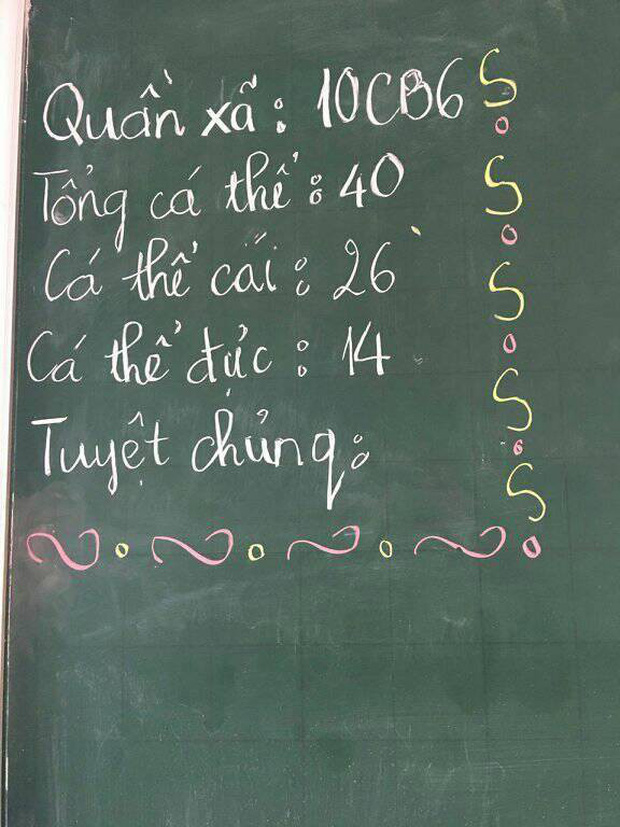 Quần xã: 10CB6
Tổng cá thể: 40
Cá thể cái: 26
Cá thể đực: 14
Tuyệt chủng: